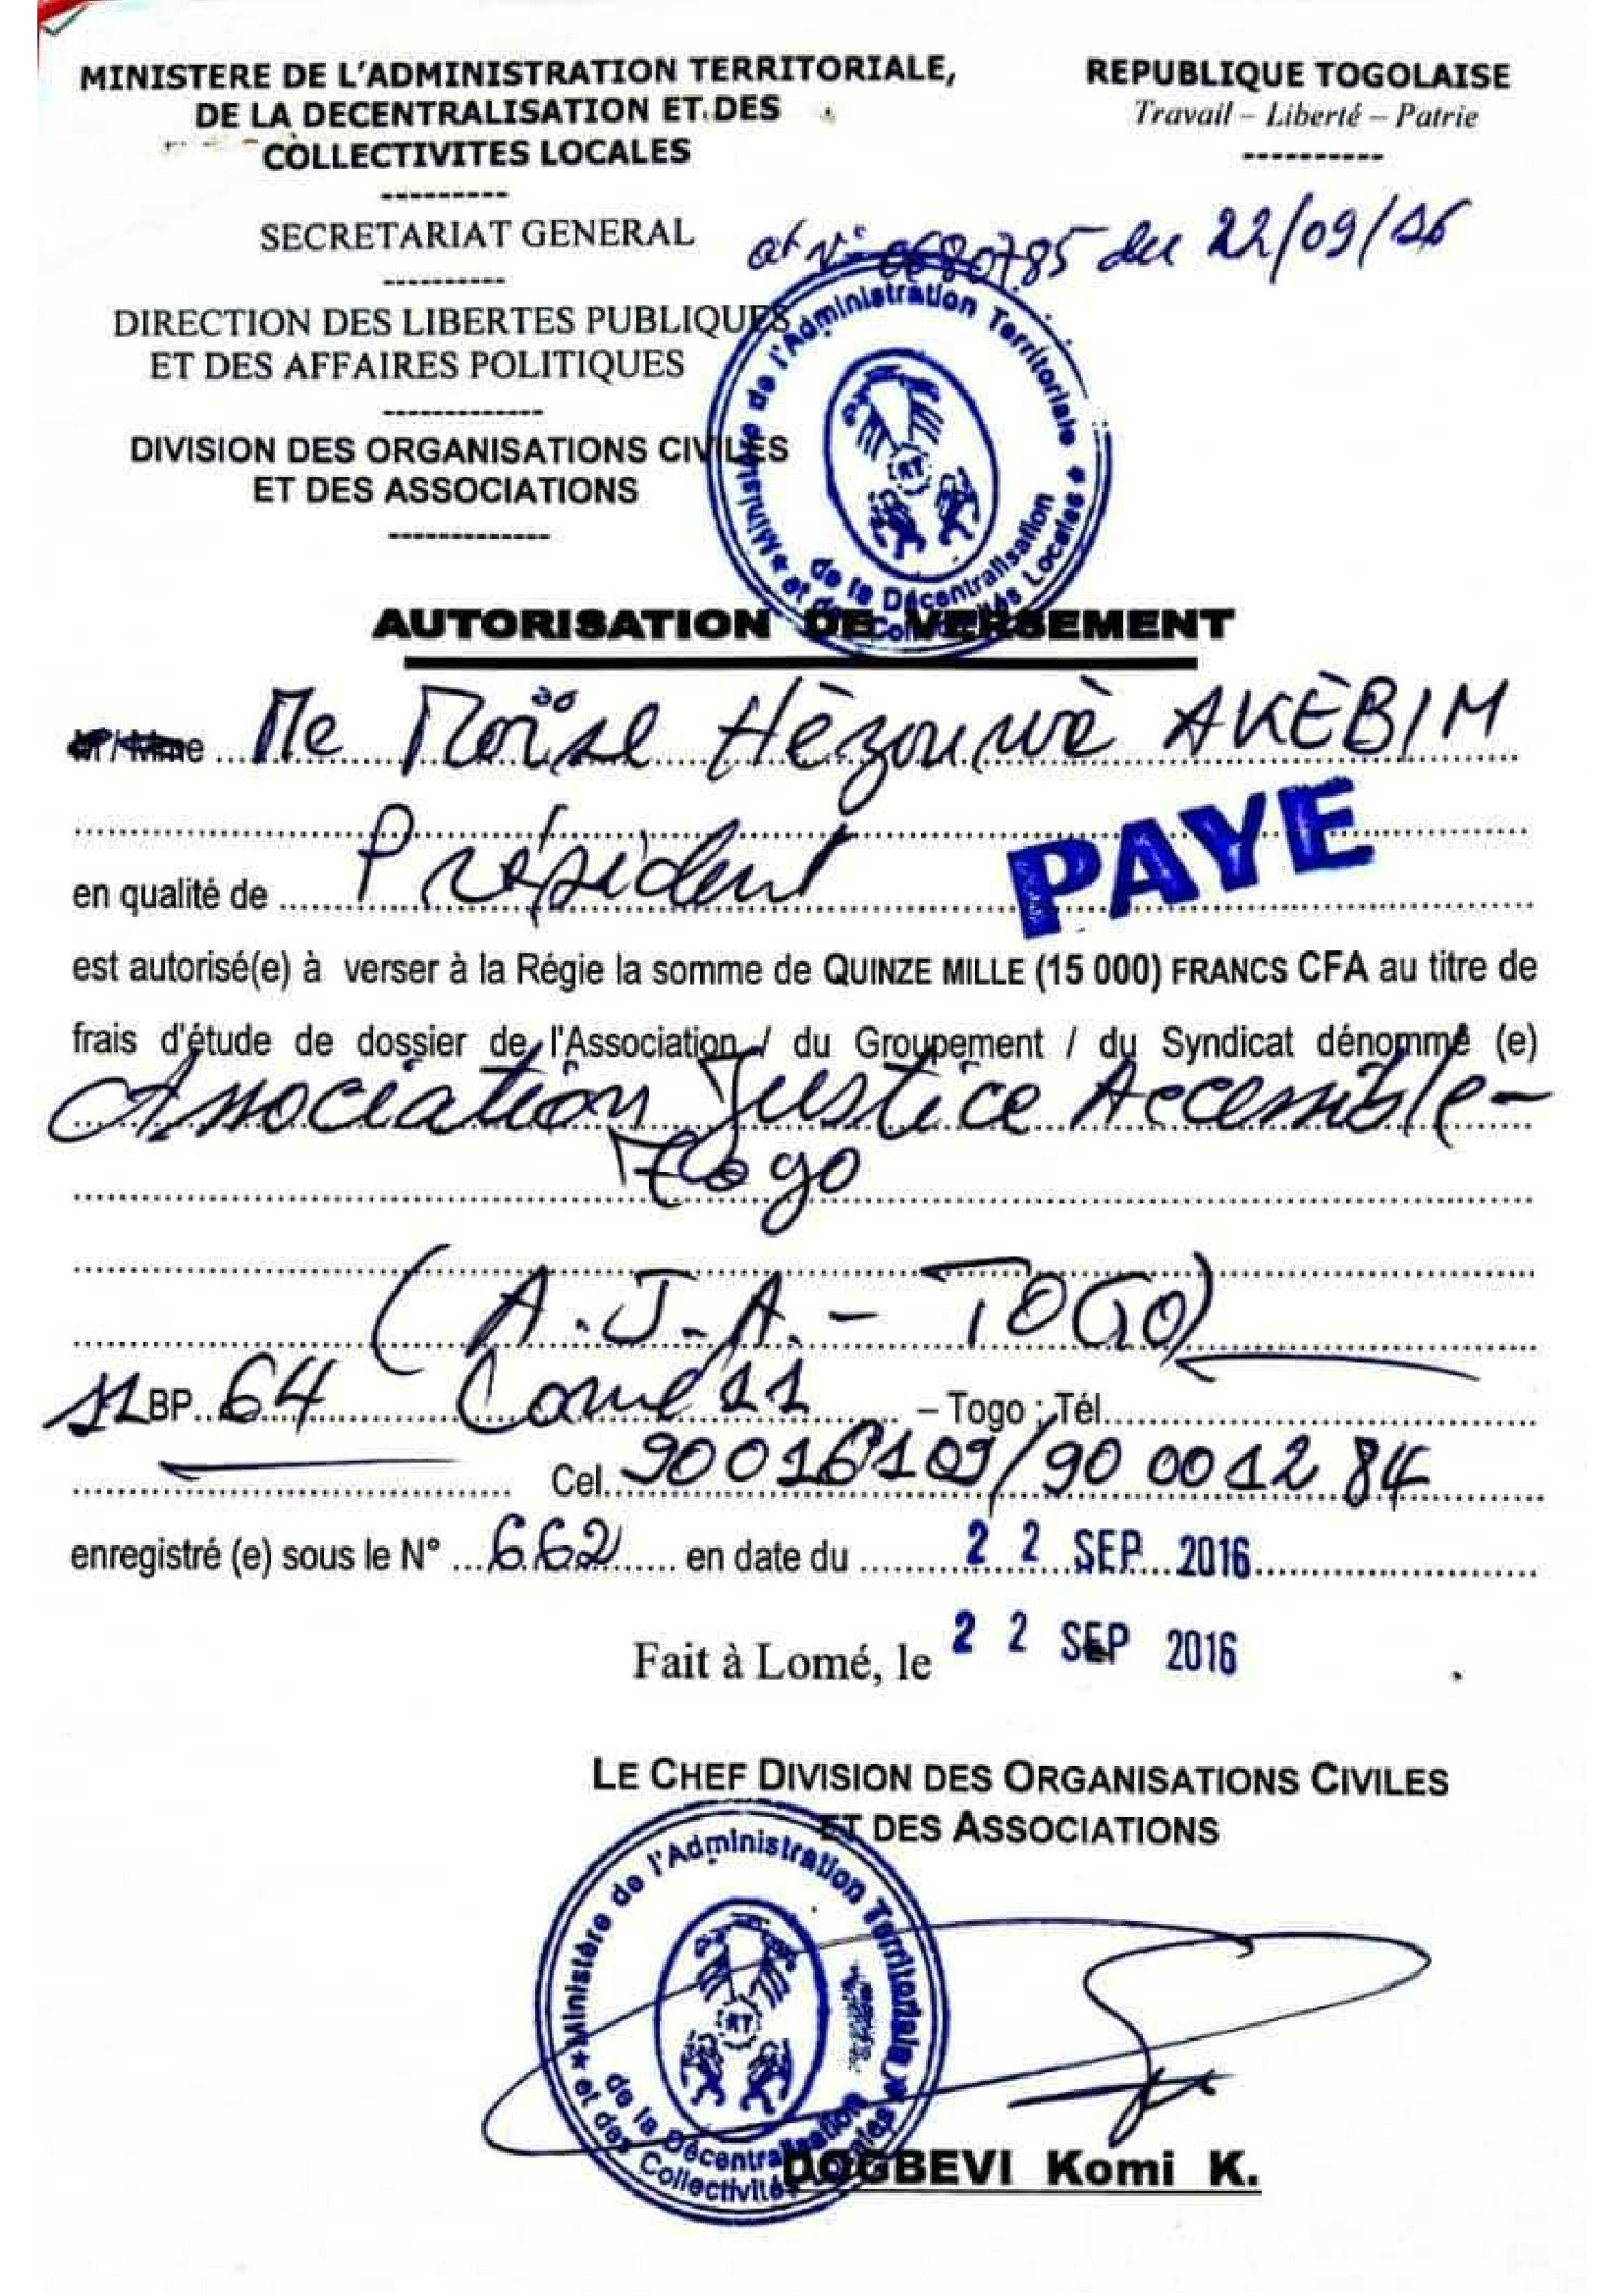 MINISTERE DE L'ADMINISTRATION TERRITORIALE,
DE LA DECENTRALISATION ET DES
COLLECTIVITES LOCALES
----------
SECRETARIAT GENERAL
----------
DIRECTION DES LIBERTES PUBLIQUES
ET DES AFFAIRES POLITIQUES
-------------
DIVISION DES ORGANISATIONS CIVILES
ET DES ASSOCIATIONS
-------------
REPUBLIQUE TOGOLAISE
Travail – Liberté – Patrie
----------
du 22/09/16
Ministère de l'Administration Territoriale
de la Décentralisation
et des Collectivités Locales
RT
AUTORISATION DE VERSEMENT
M / Mme Me Moïse Hèzouwè AKÈBIM
PAYE
en qualité de Président
est autorisé(e) à verser à la Régie la somme de QUINZE MILLE (15 000) FRANCS CFA au titre de
frais d'étude de dossier de l'Association / du Groupement / du Syndicat dénommé (e)
Association Justice Accessible –
Togo
(A.J.A. – TOGO)
11 BP 64 Lomé 11 – Togo ; Tél
Cel. 90016109/90 00 12 84
enregistré (e) sous le N° 662 en date du 22 SEP 2016
Fait à Lomé, le 22 SEP 2016
LE CHEF DIVISION DES ORGANISATIONS CIVILES
ET DES ASSOCIATIONS
Ministère de l'Administration Territoriale
de la Décentralisation
et des Collectivités Locales
RT
DOGBEVI Komi K.